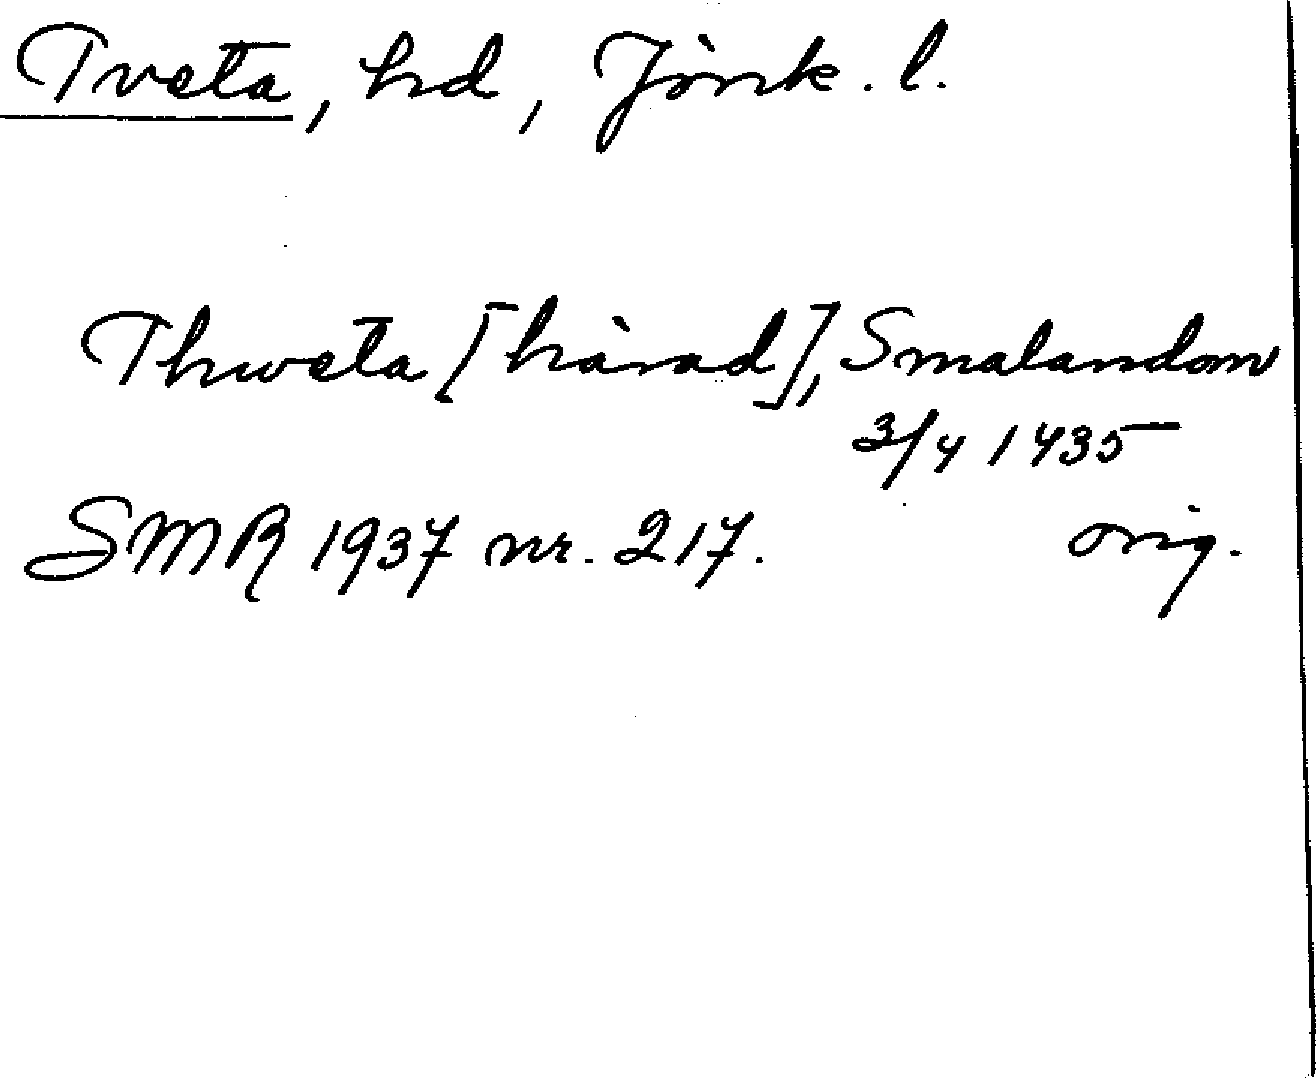 Tveta, hd, Jönk. l.
Thweta [härad], Smalandom
3/4 1435
SMR 1937 nr. 217. orig.